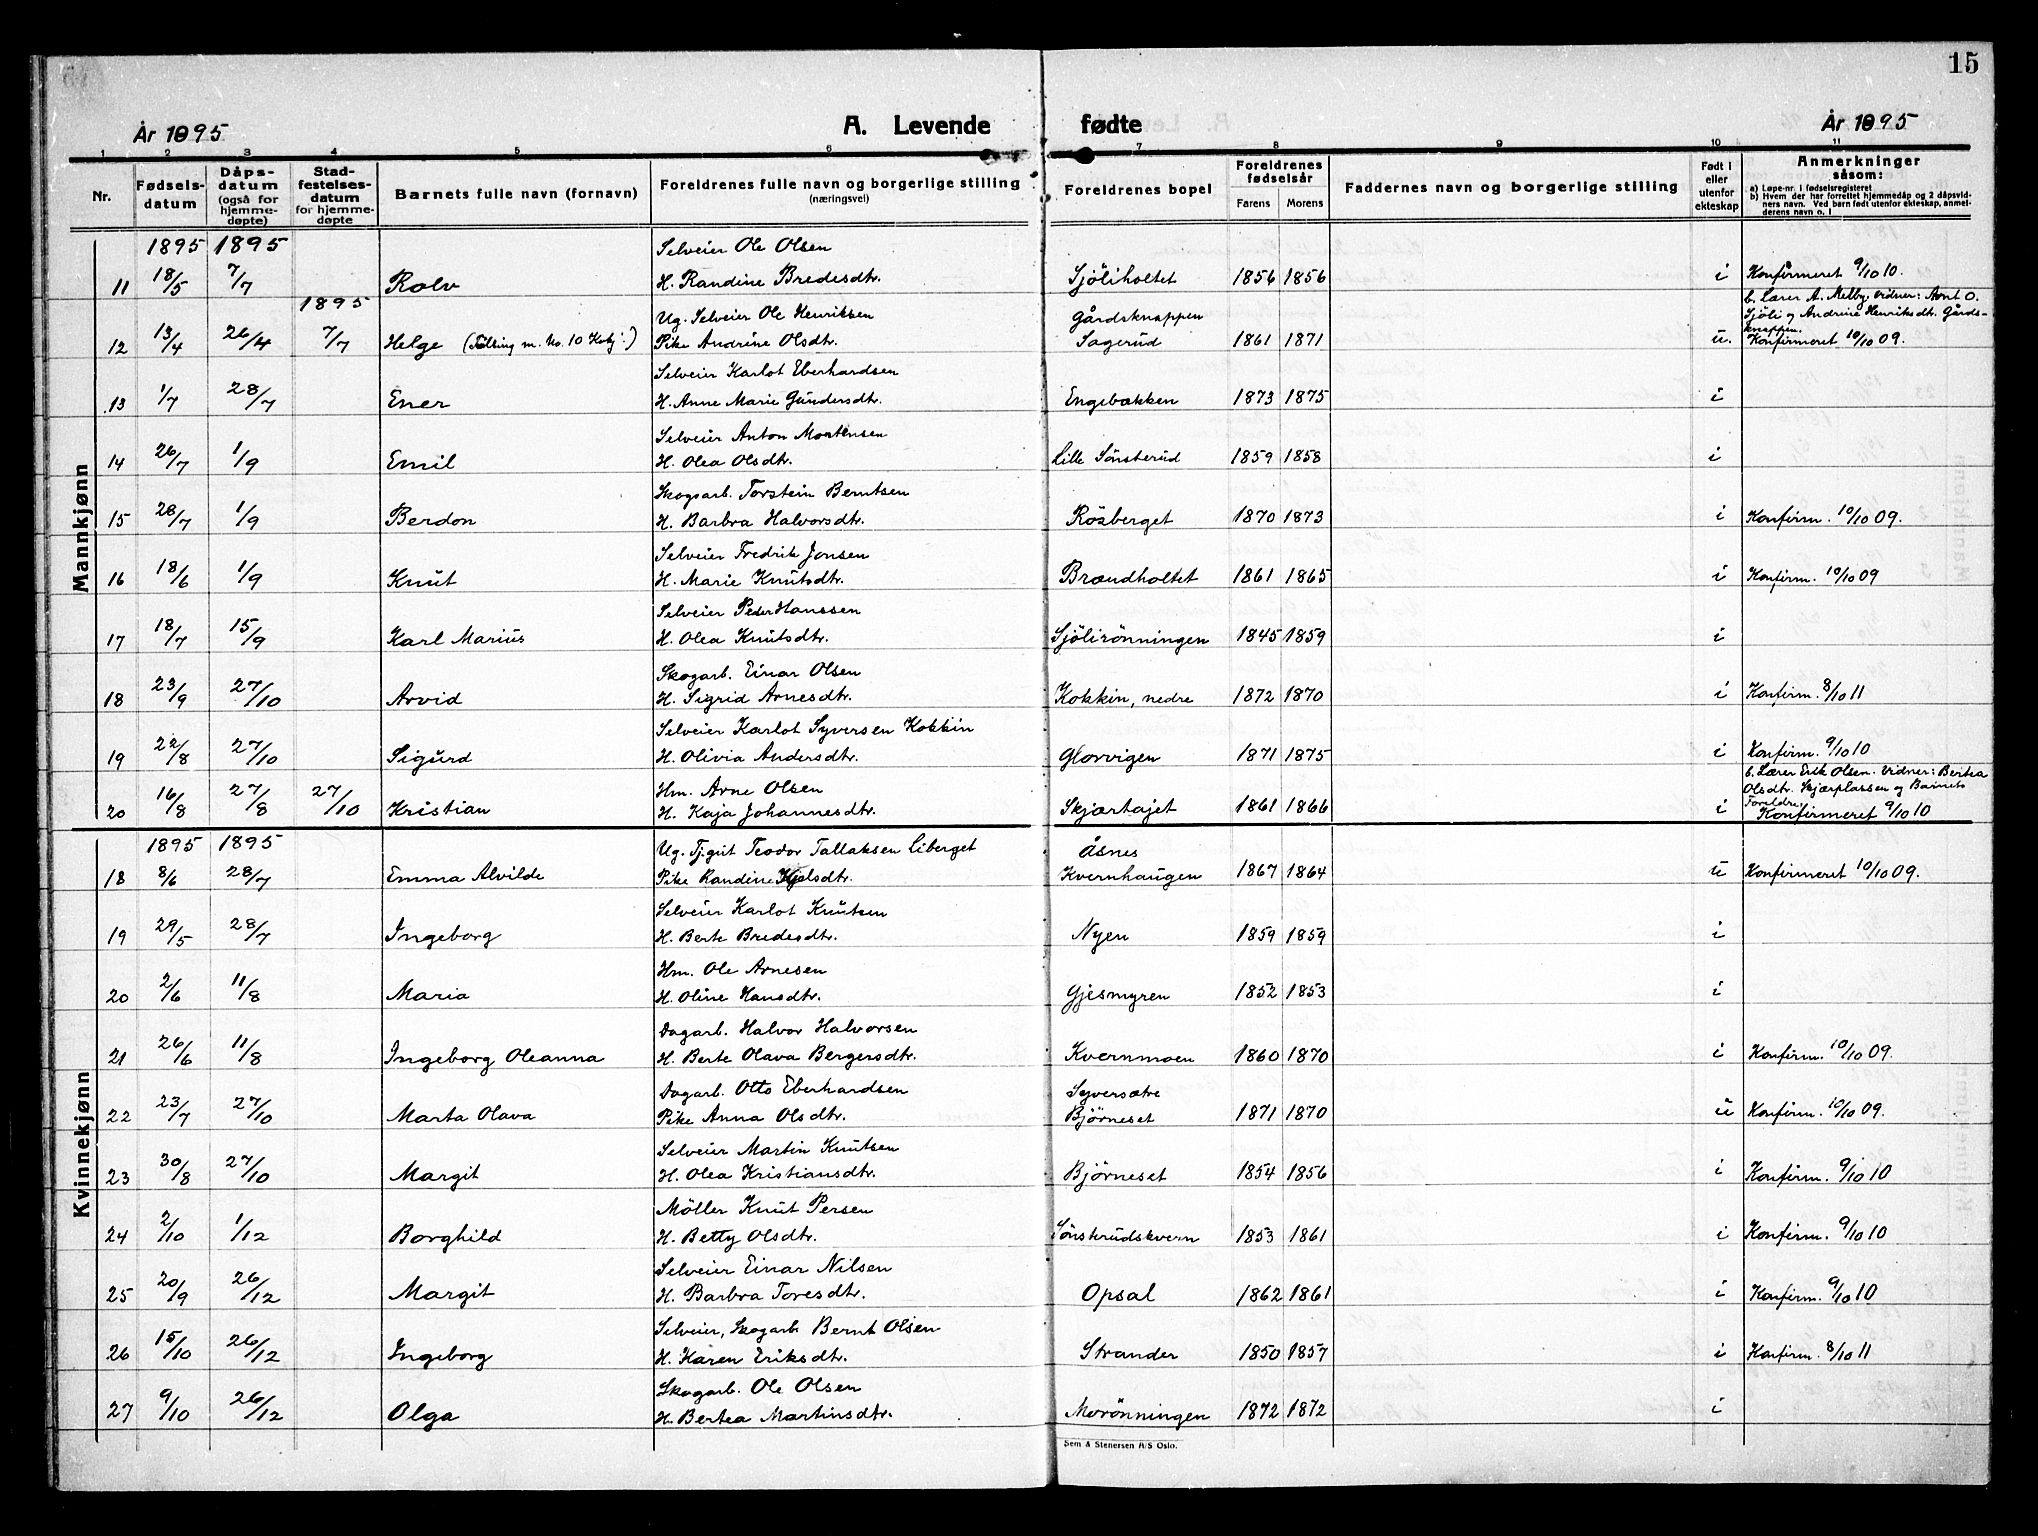 15
År 1895
A. Levende fødte
År 1895
1 2 3 4 5 6 7 8 9 10 11
Nr.
Fødsels-
datum
Dåps-
datum
(også for
hjemme-
døpte)
Stad-
festelses-
datum
for hjemme-
døpte
Barnets fulle navn (fornavn)
Foreldrenes fulle navn og borgerlige stilling
(næringsvei)
Foreldrenes bopel
Foreldrenes
fødselsår
Farens Morens
Faddernes navn og borgerlige stilling
Født i
eller
utenfor
ekteskap
Anmerkninger
såsom:
a) Løpe-nr. i fødselsregisteret
b) Hvem der har forrettet hjemmedåp og 2 dåpsvid-
ners navn. Ved barn født utenfor ekteskap, anmel-
derens navn o. l
Mannkjønn
1895 1895 Selveier Ole Olsen
11 18/5 7/7 Rolv H. Randine Bredesdtr. Sjöliholtet 1856 1856 i Konfirmeret 9/10 10.
1895 Ug. Selveier Ole Henriksen Gårdsknappen b. Lærer A. Melby. Vidner: Arnt O.
Sjöli og Andrine Henriksdt. Gårds-
knappen.
12 13/4 26/4 7/7 Helge (Tvilling m. No. 10 Kvkj.) Pike Andrine Olsdtr. Sagerud 1861 1871 u. Konfirmeret 10/10 09.
Selveier Karlot Eberhardsen
13 1/7 28/7 Ener H. Anne Marie Gundersdtr. Engebakken 1873 1875 i
Selveier Anton Mortensen
14 26/7 1/9 Emil H. Olea Olsdtr. Lille Sönsterud 1859 1858 i
Skogsarb. Torstein Berntsen
15 28/7 1/9 Berdon H. Barbra Halvorsdtr. Rösberget 1870 1873 i Konfirm. 10/10 09.
Selveier Fredrik Jonsen
16 18/6 1/9 Knut H. Marie Knutsdtr. Brændholtet 1861 1865 i Konfirm. 10/10 09
Selveier Peder Hanssen
17 18/7 15/9 Karl Marius H. Olea Knutsdtr. Sjölirönningen 1845 1859 i
Skogarb. Einar Olsen
18 23/9 27/10 Arvid H. Sigrid Arnesdtr. Kokkin, nedre 1872 1870 i Konfirm. 8/10 11
Selveier Karlot Syversen Kokkin
19 22/8 27/10 Sigurd H. Olivia Andersdtr. Glorvigen 1871 1875 i Konfirm. 9/10 10
Hm. Arne Olsen b. Lærer Erik Olsen. Vidner: Bertea
Olsdtr. Skjærplassen og Barnets
Foreldre
20 16/8 27/8 27/10 Kristian H. Kaja Johannesdtr. Skjærtajet 1861 1866 i Konfirmeret 9/10 10
Kvinnekjønn
1895 1895 Ug. Tj.gut Teodor Tallaksen Liberget Åsnes
18 8/6 28/7 Emma Alvilde Pike Randine Kjelsdtr. Kvernhaugen 1867 1864 u Konfirmeret 10/10 09.
Selveier Karlot Knutsen
19 29/5 28/7 Ingeborg H. Berte Bredesdtr. Nyen 1859 1859 i
Hm. Ole Arnesen
20 2/6 11/8 Maria H. Oline Hansdtr. Gjesmyren 1852 1853 i
Dagarb. Halvor Halvorsen
21 26/6 11/8 Ingeborg Oleanna H. Berte Olava Bergersdtr. Kvernmoen 1860 1870 i Konfirm. 10/10 09.
Dagarb. Otto Eberhardsen Syversætre
22 23/7 27/10 Marta Olava Pike Anna Olsdtr. Björneset 1871 1870 u Konfirm. 10/10 09.
Selveier Martin Knutsen
23 30/8 27/10 Margit H. Olea Kristiansdtr. Björneset 1854 1856 i Konfirm. 9/10 10
Möller Knut Persen
24 2/10 1/12 Borghild H. Betty Olsdtr. Sönsterudskvern 1853 1861 i Konfirm. 9/10 10
Selveier Einar Nilsen
25 20/9 26/12 Margit H. Barbra Toresdtr. Opsal 1862 1861 i Konfirm. 9/10 10
Selveier, Skogarb. Bernt Olsen
26 15/10 26/12 Ingeborg H. Karen Eriksdtr. Strander 1850 1857 i Konfirm. 8/10 11
Skogarb. Ole Olsen
27 9/10 26/12 Olga H. Bertea Martinsdtr. Morönningen 1872 1872 i
Sem & Stenersen A/S Oslo.